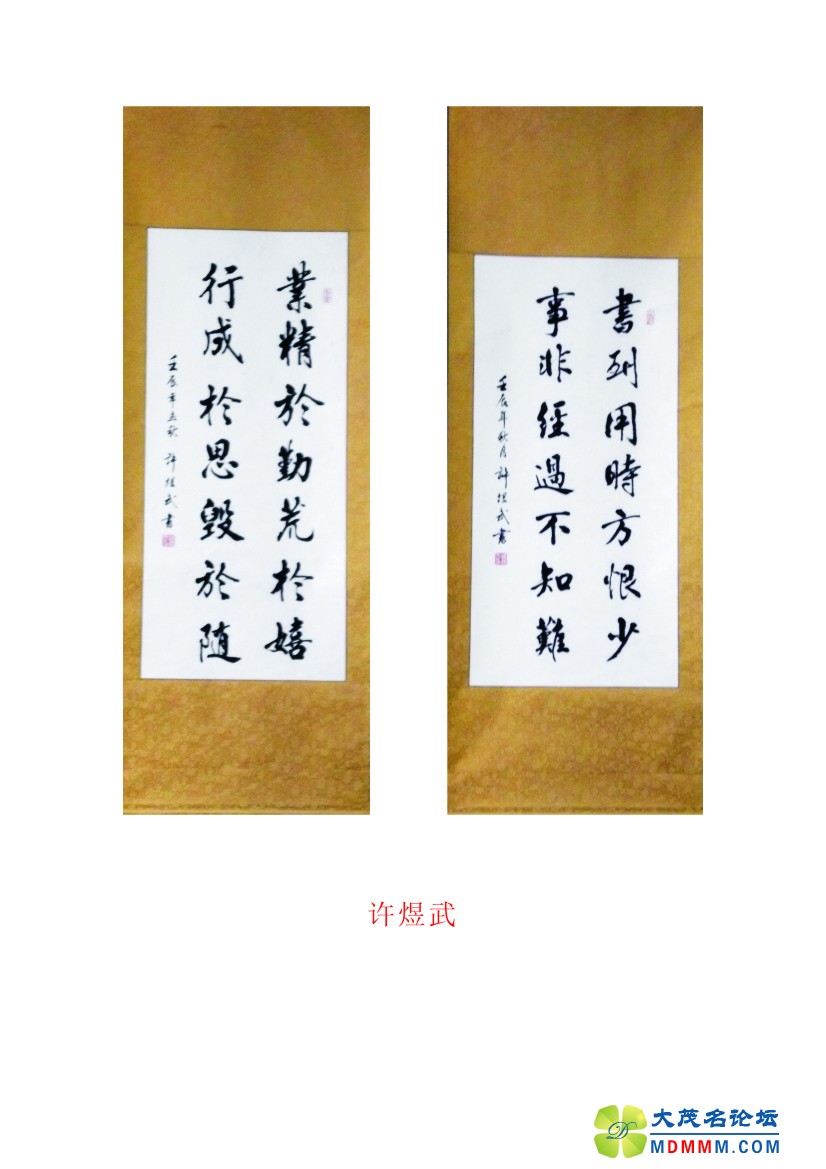 業精於勤荒於嬉
行成於思毀於随
壬辰年立秋 许煜武書
書到用時方恨少
事非經過不知難
壬辰年秋月 许煜武書
许煜武
大茂名论坛
MDMMM.COM